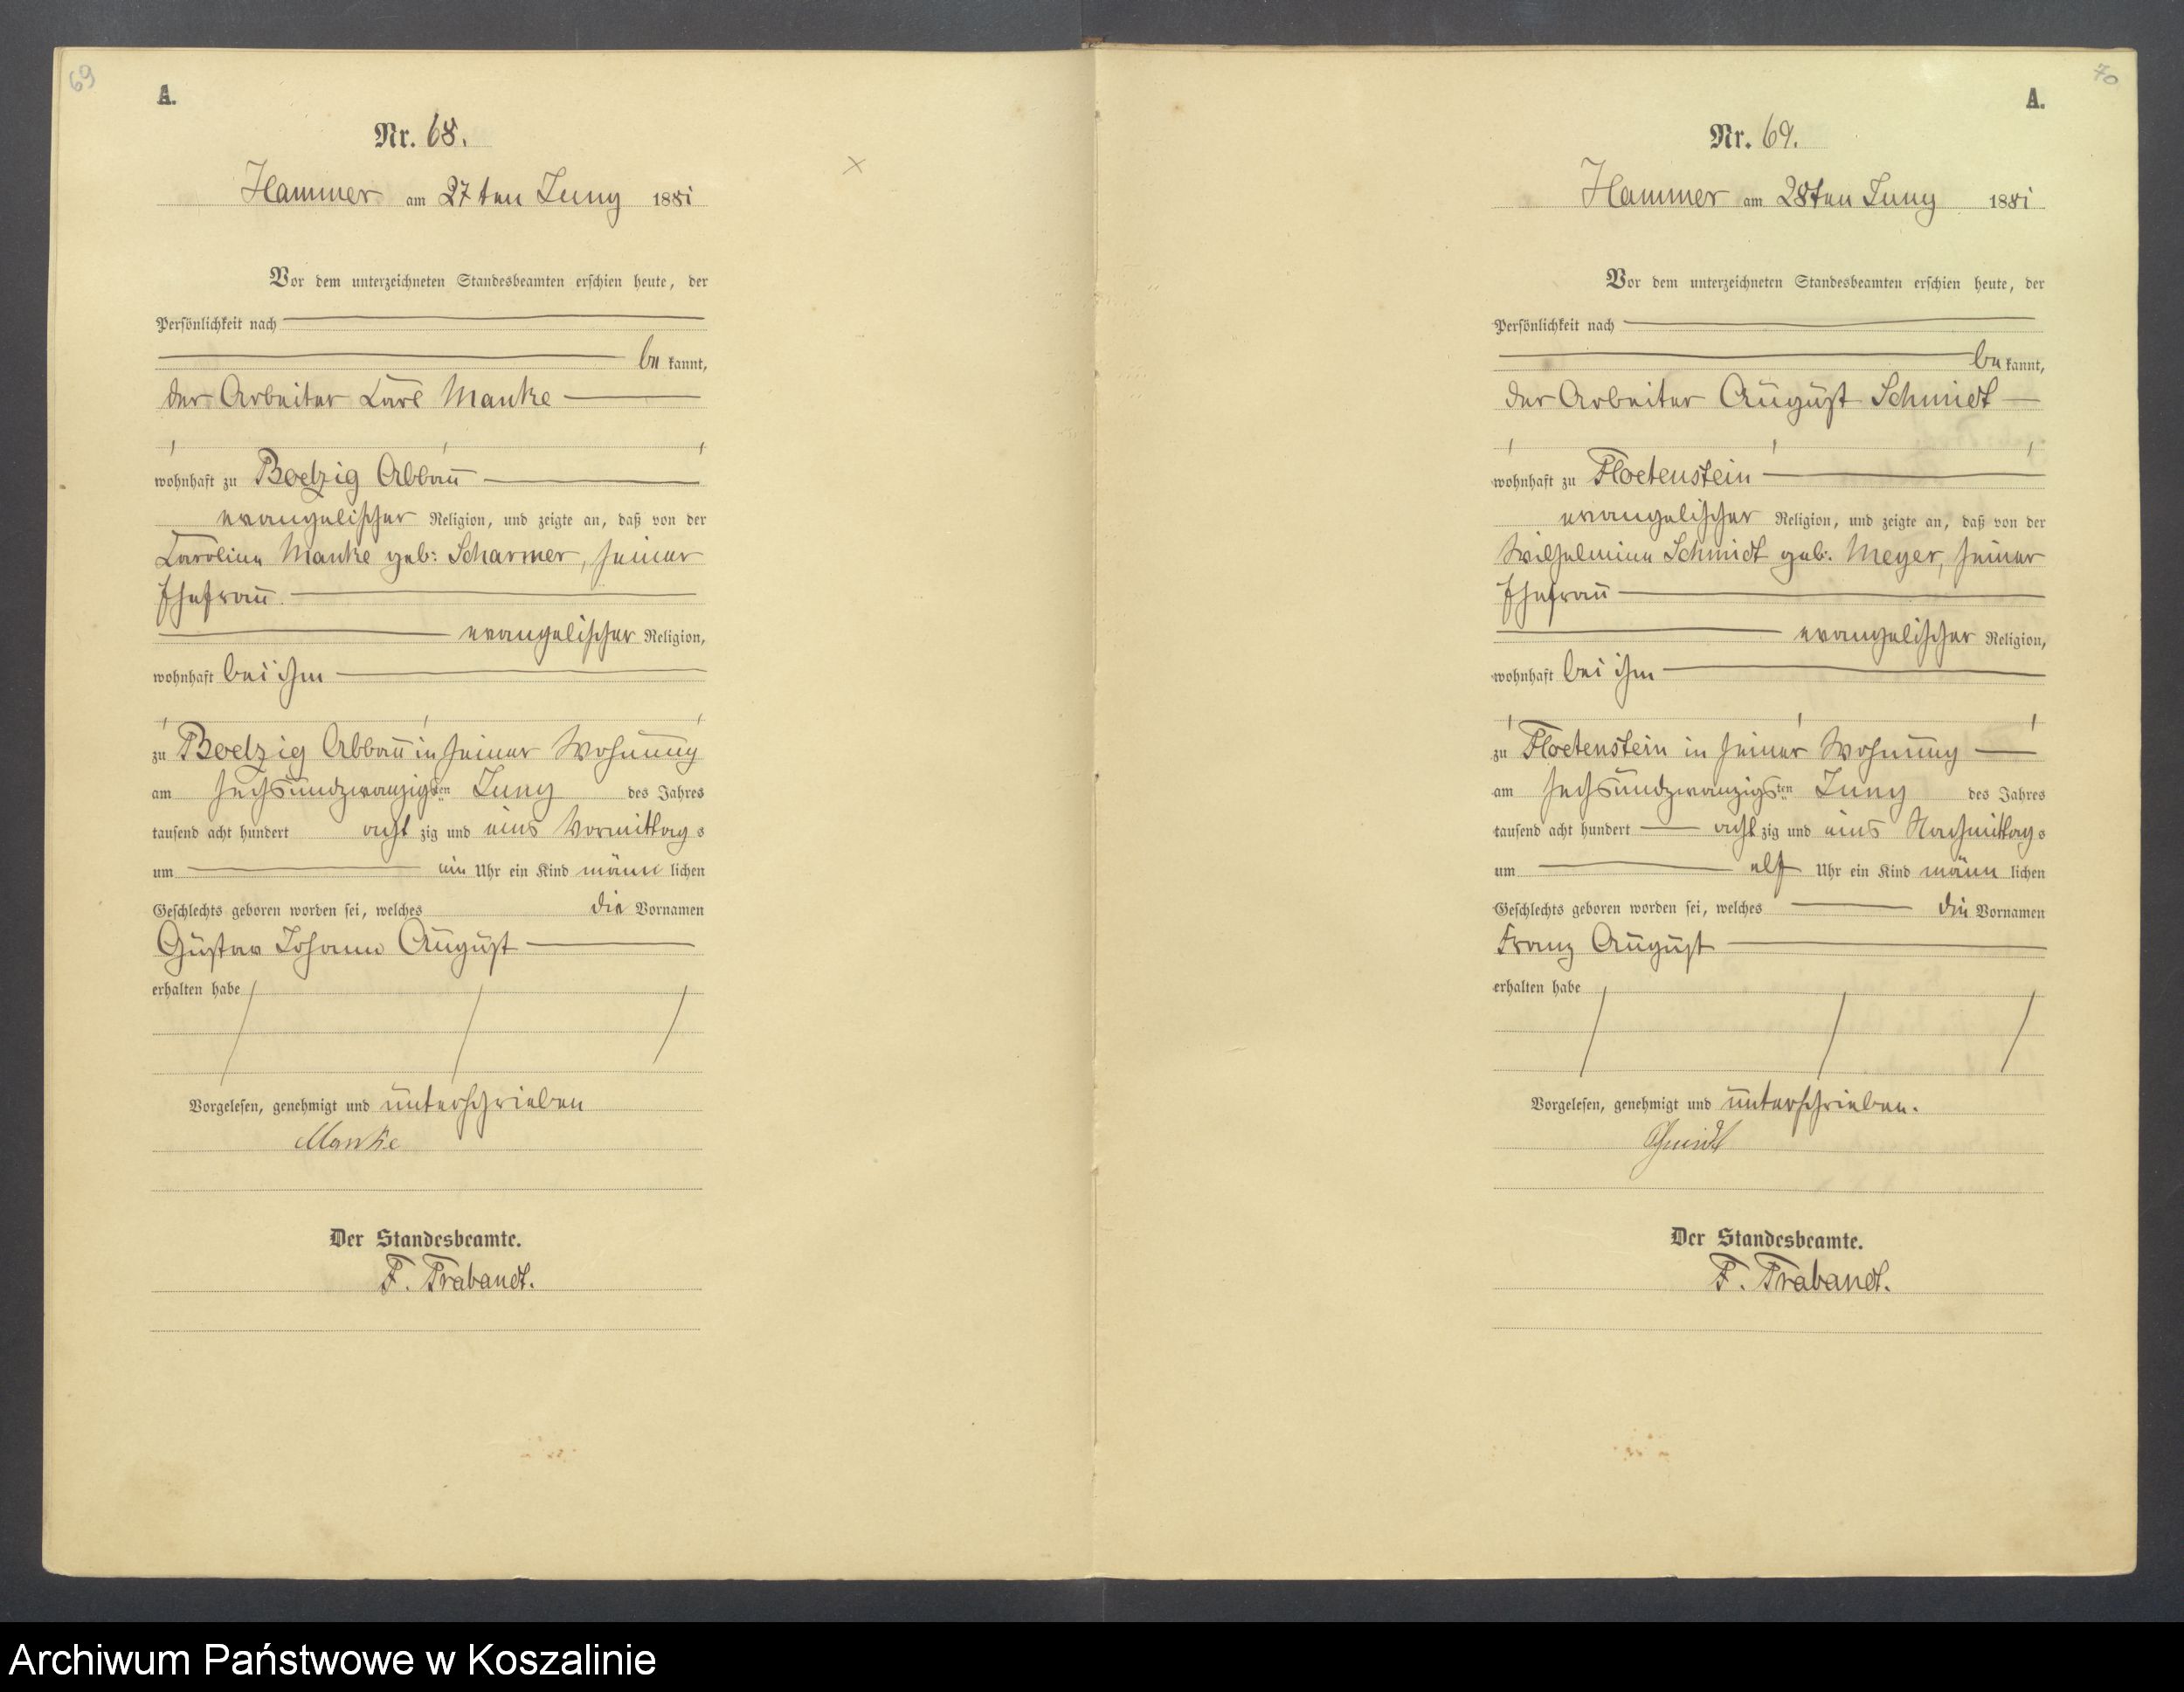 69
A.
Nr. 68.
Hammer am 27ten Juny 1881
Vor dem unterzeichneten Standesbeamten erschien heute, der
Persönlichkeit nach
be kannt,
der Arbeiter Carl Manke
wohnhaft zu Boelzig Abbau
evangelischer Religion, und zeigte an, daß von der
Caroline Manke geb: Scharmer, seiner
Ehefrau.
evangelischer Religion,
wohnhaft bei ihm
zu Boelzig Abbau in seiner Wohnung
am sechsundzwanzigsten Juny des Jahres
tausend acht hundert acht zig und eins Vormittags
um ein Uhr ein Kind männ lichen
Geschlechts geboren worden sei, welches die Vornamen
Gustav Johann August
erhalten habe
Vorgelesen, genehmigt und unterschrieben
Manke
Der Standesbeamte.
F. Trabandt.
70
A.
Nr. 69.
Hammer am 28ten Juny 1881
Vor dem unterzeichneten Standesbeamten erschien heute, der
Persönlichkeit nach
be kannt,
der Arbeiter August Schmidt
wohnhaft zu Floetenstein
evangelischer Religion, und zeigte an, daß von der
Wilhelmine Schmidt geb: Meyer, seiner
Ehefrau
evangelischer Religion,
wohnhaft bei ihm
zu Floetenstein in seiner Wohnung
am sechsundzwanzigsten Juny des Jahres
tausend acht hundert acht zig und eins Nachmittags
um elf Uhr ein Kind männ lichen
Geschlechts geboren worden sei, welches die Vornamen
Franz August
erhalten habe
Vorgelesen, genehmigt und unterschrieben.
Schmidt
Der Standesbeamte.
F. Trabandt.
Archiwum Państwowe w Koszalinie